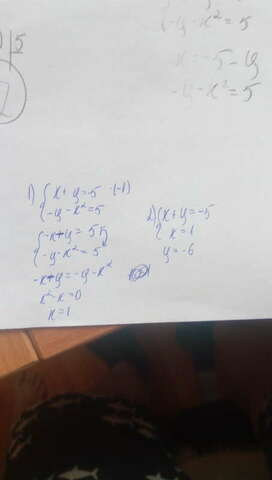 5
-y-x²=5
x=-5-y
-y-x²=5
1) { x+y=-5 ·(-1)
{ -y-x²=5
{ -x+y=5
{ -y-x²=5
-x+y=-y-x²
x²-x=0
x=1
2) { x+y=-5
{ x=1
y=-6